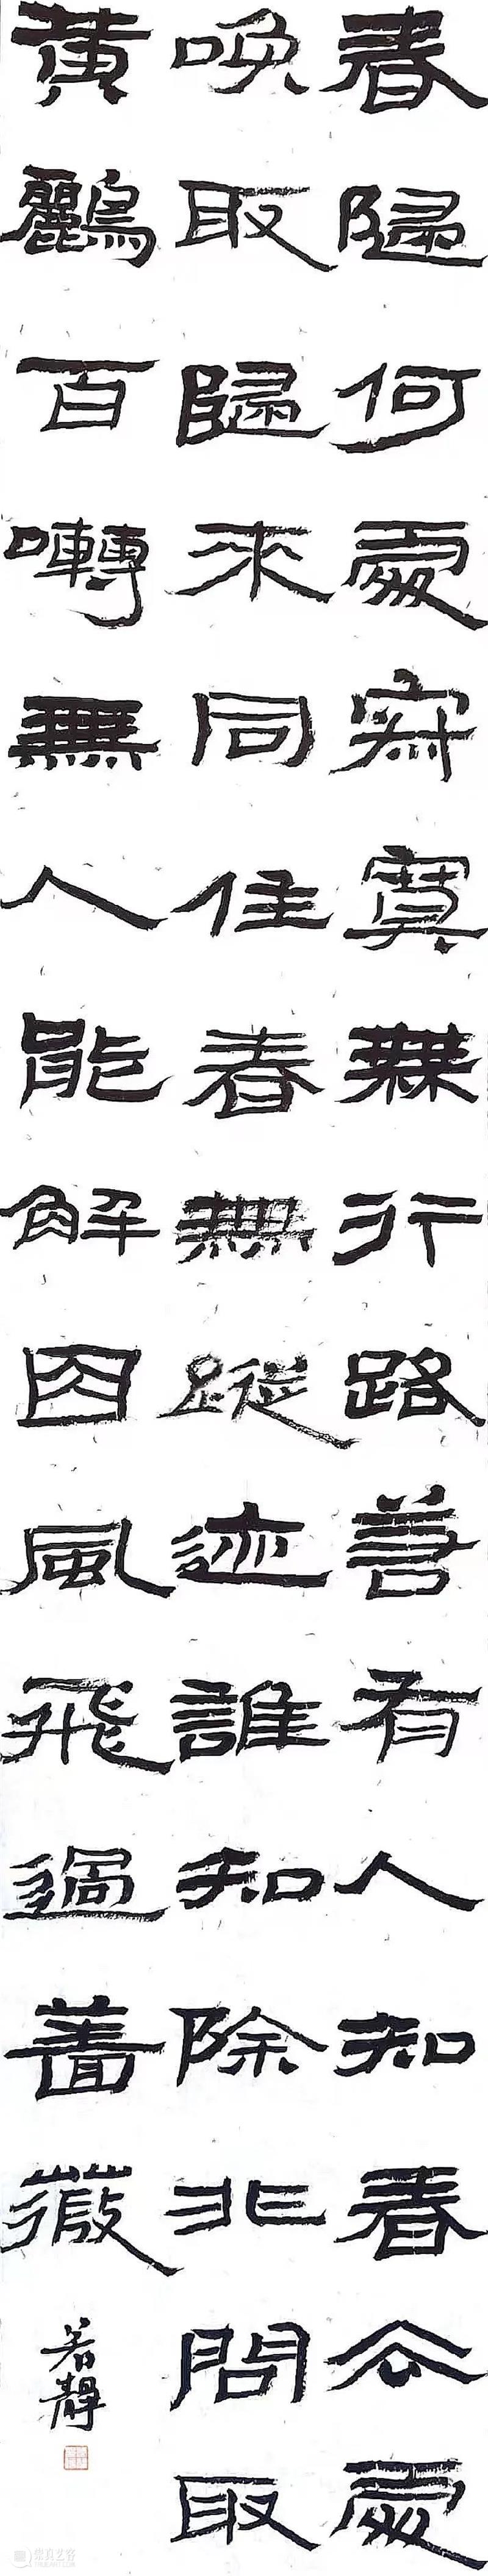 春歸何處寂寞無行路若有人知春去處
喚取歸來同住春無蹤迹誰知除非問取
黃鸝百囀無人能解因風飛過薔薇
若靜
崇真艺客